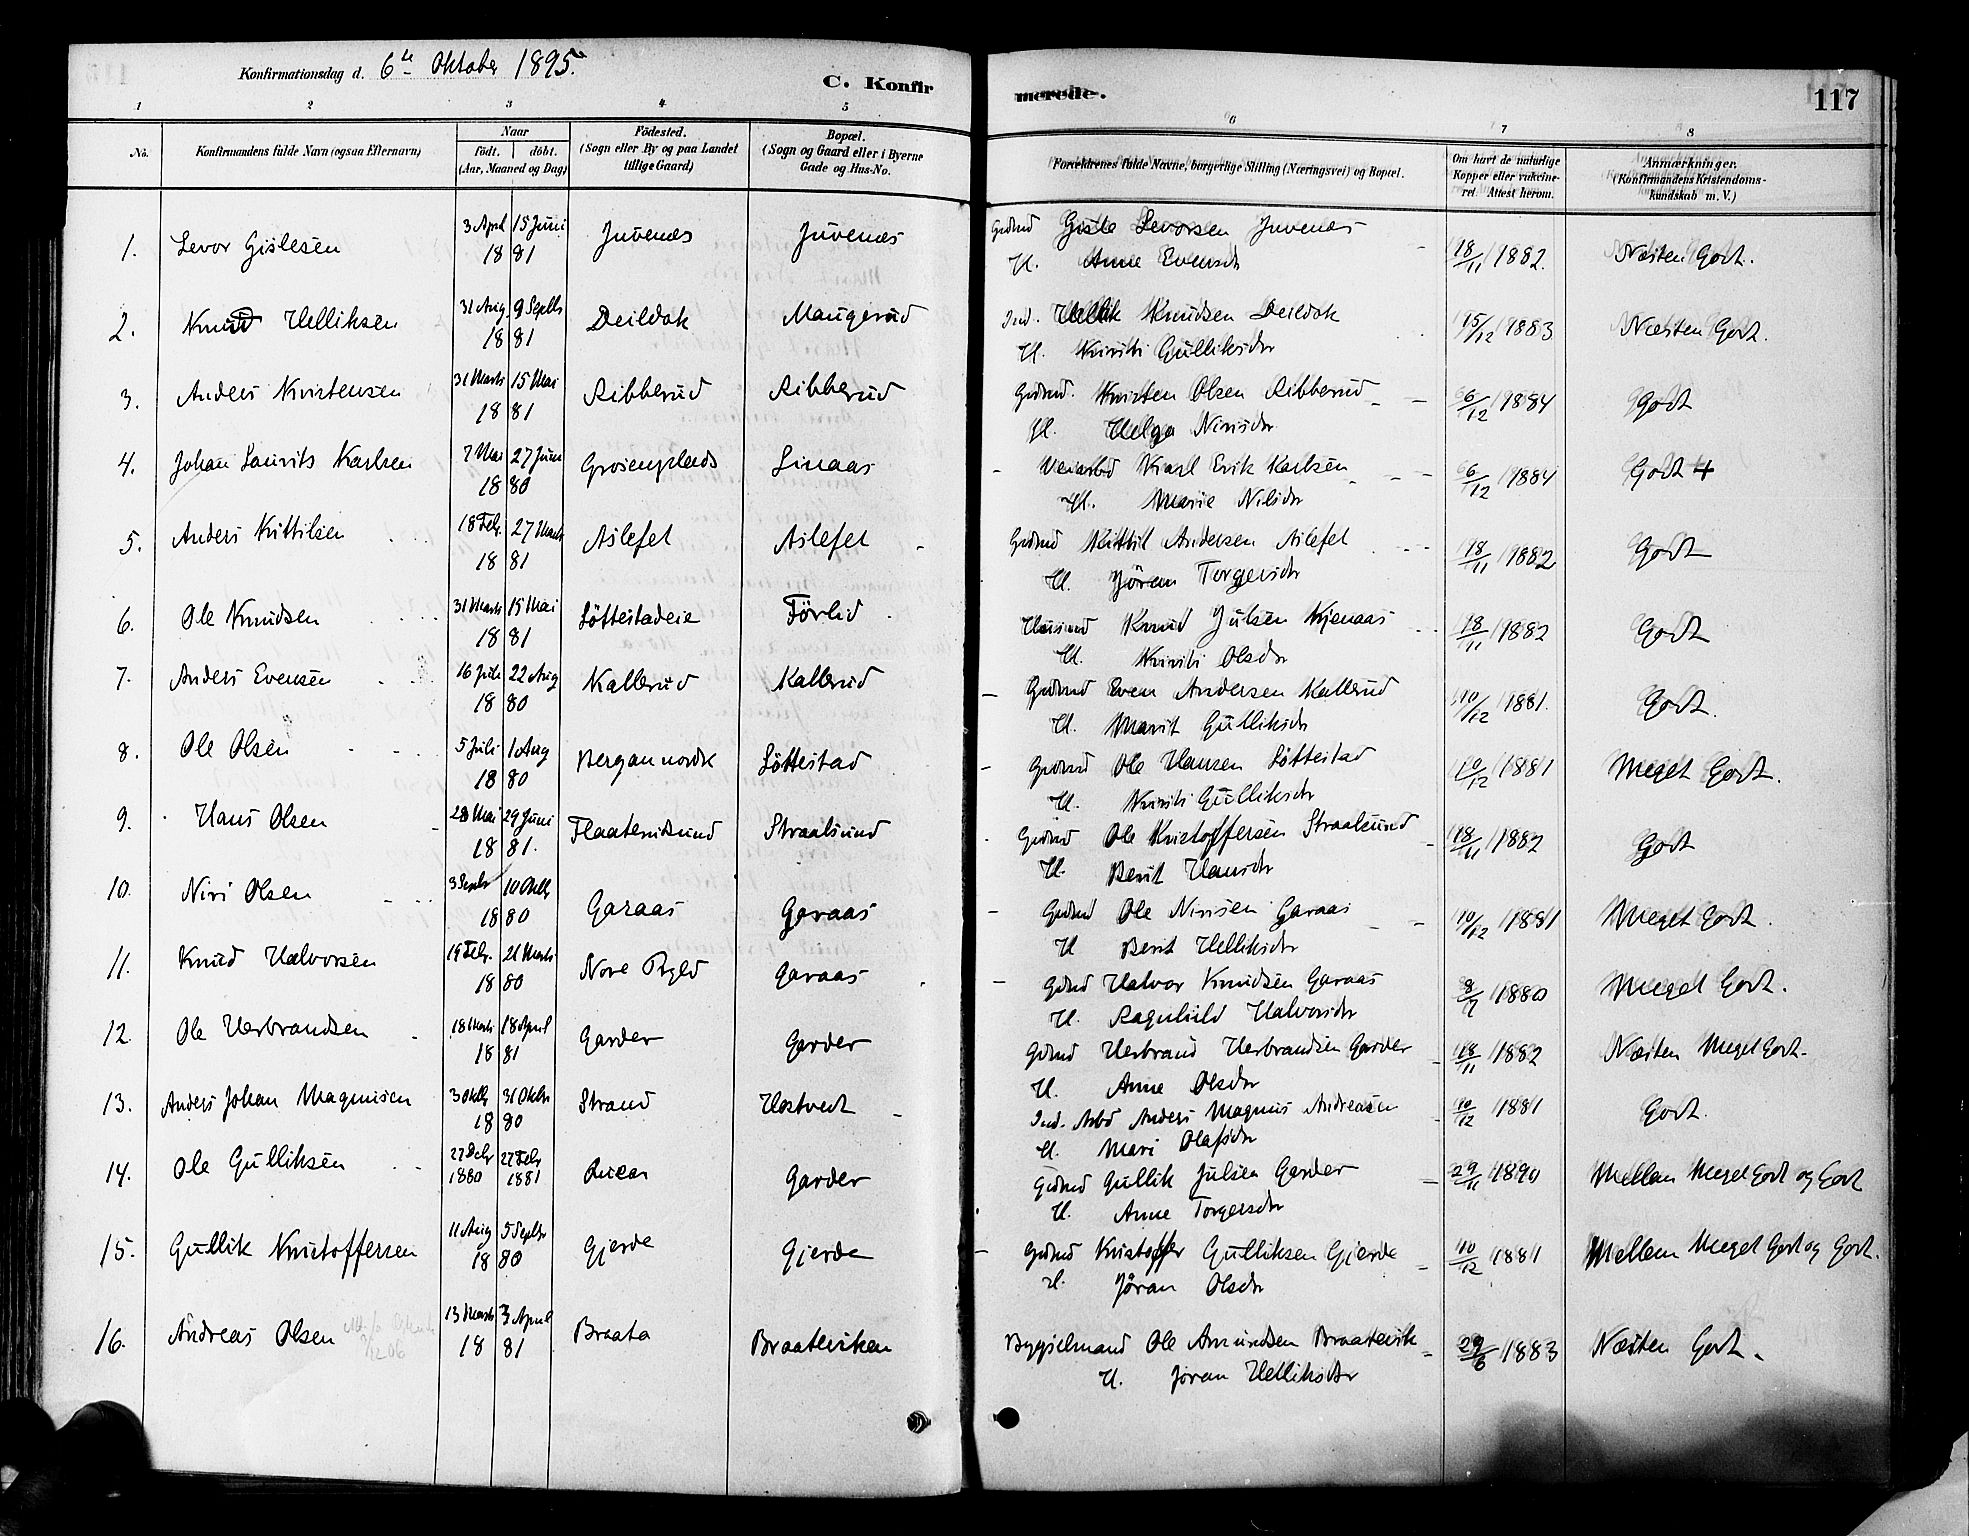 Konfirmationsdag d. 6te Oktober 1895.
C. Konfirmerede.
117
1 2 3 4 5 6 7 8
No. Konfirmandens fulde Navn (ogsaa Efternavn) Naar födt. döbt. (Aar, Maaned og Dag) Födested. (Sogn eller By og paa Landet tillige Gaard) Bopæl. (Sogn og Gaard eller i Byerne Gade og Hus-No. Forældrenes fulde Navne, borgerlige Stilling (Næringsvei) og Bopæl. Om havt de naturlige Kopper eller vakcineret. Attest herom. Anmærkninger. (Konfirmandens Kristendomskundskab m. V.)
1. Levor Gislesen 3 April 15 Juni 1881 Juvenes Juvenes Gdmd Gisle Levorsen Juvenes 18/11 1882. Næsten Godt.
H. Anne Evensdr
2. Knud Helliksen 31 Aug. 9 Septbr 1881 Deildok Maugerud Ind. Hellik Knudsen Deildok 15/12 1883 Næsten Godt.
H. Kristi Gulliksdr
3. Anders Kristensen 31 Marts 15 Mai 1881 Ribberud Ribberud Gdmd. Kristen Olsen Ribberud 6/12 1884 Godt
H. Helga Nirisdr
4. Johan Laurits Karlsen 7 Mai 27 Juni 1880 Linaas Karl Erik Karlsen 6/12 1884 Godt +
H. Marie Nilsdr
5. Anders Kittilsen 18 Febr. 27 Marts 1881 Aslefet Aslefet Gdmd Kittil Andersen Aslefet 18/11 1882 Godt
H. Jöran Torgersdr
6. Ole Knudsen 31 Marts 15 Mai 1881 Löttestadeie Förlid Husmd Knud Julsen Kjenaas 18/11 1882 Godt
H. Kristi Olsdr
7. Anders Evensen 16 Juli 22 Aug 1880 Kallerud Kallerud Gdmd Even Andersen Kallerud 10/12 1881. Godt.
H. Marit Gulliksdr
8. Ole Olsen 5 Juli 1 Aug 1880 Bergan nordre Löttestad Gdmd Ole Hansen Löttestad 10/12 1881 Meget Godt.
H. Kristi Gulliksdr
9. Hans Olsen 28 Mai 29 Juni 1881. Straalsund Gdmd Ole Kristoffersen Straalsund 18/11 1882 Godt
H. Berit Hansdr
10. Niri Olsen 3 Septbr 10 Oktbr 1880 Garaas Garaas Gdmd Ole Nirisen Garaas 10/12 1881 Meget Godt.
H Berit Helliksdr
11. Knud Halvorsen 19 Febr. 21 Marts 1880 Nore Garaas Gdmd Halvor Knudsen Garaas 8/7 1880 Meget Godt.
H. Ragnhild Halvorsdr
12. Ole Herbrandsen 18 Marts 18 April 1881 Garder Garder Gdmd Herbrand Herbrandsen Garder 18/11 1882 Næsten Meget Godt.
H. Anne Olsdr
13. Anders Johan Magnusen 3 Oktbr 31 Oktbr 1880 Strand Hostvedt Ind. Arbd Anders Magnus Andreasen 10/12 1881 Godt.
H. Mari Olafsdr
14. Ole Gulliksen 27 Debr 1880 27 Febr 1881 Garder Gdmd Gullik Julsen Garder 29/11 1890 Mellem Meget Godt og Godt
H. Anne Torgersdr
15. Gullik Kristoffersen 11 Aug 5 Septbr 1880 Gjerde Gjerde Gdmd Kristoffer Gulliksen Gjerde 10/12 1881 Mellem Meget Godt og Godt.
H. Jöran Olsdr
16. Andreas Olsen 13 Marts 3 April 1881 Braata Braateviken Bygselmand Ole Amundsen Braatevik 1883 Næsten Godt.
H. Jöran Helliksdtr